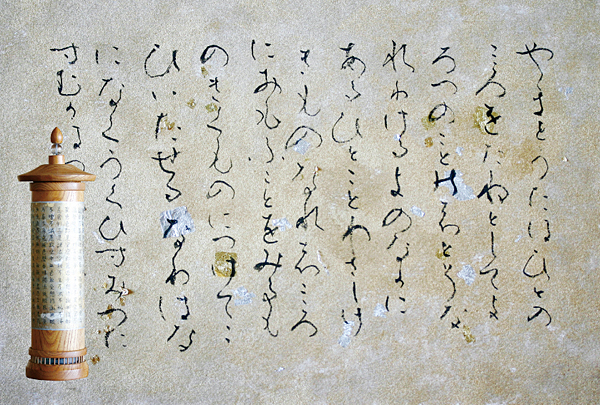 やまとうたはひとの
こころをたねとしてよ
ろつのことのはとそな
れりけるよのなかに
あるひとことわさしけ
きものなれはこころ
におもふことをみるも
のきくものにつけてい
ひいたせるなりはな
になくうくひすみつに
すむか